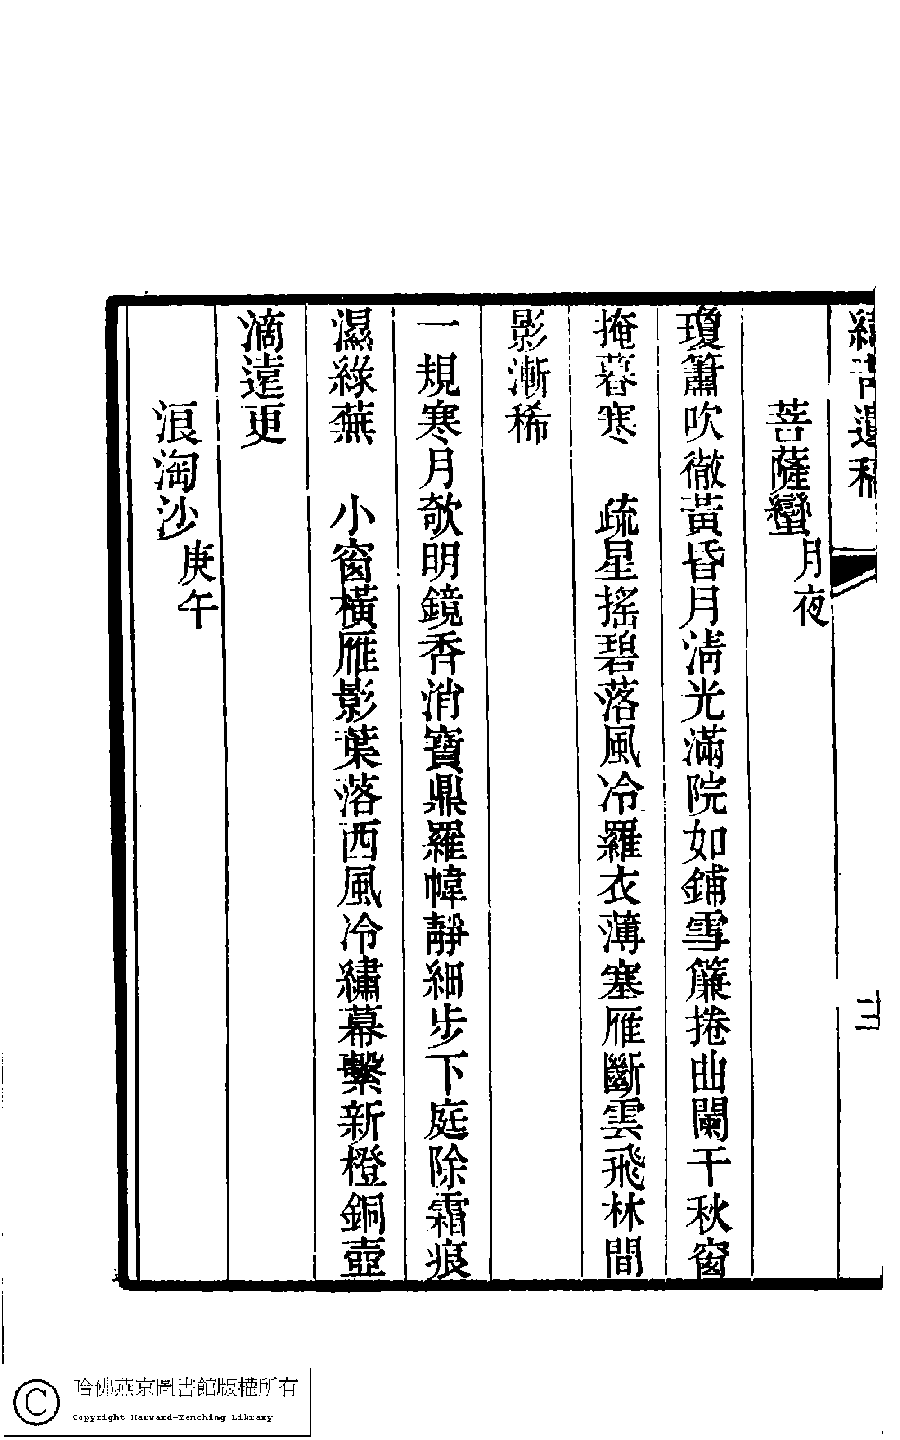 菩薩蠻月夜
瓊簫吹徹黃昏月清光滿院如鋪雪簾捲曲闌干秋窗
掩暮寒　疏星搖碧落風冷羅衣薄塞雁斷雲飛林間
影漸稀
一規寒月欹明鏡香消寶鼎羅幃靜細步下庭除霜痕
濕綠蕪　小窗橫雁影葉落西風冷繡幕繫新橙銅壺
滴遠更
浪淘沙庚午
哈佛燕京圖書館版權所有
Copyright Harvard-Yenching Library